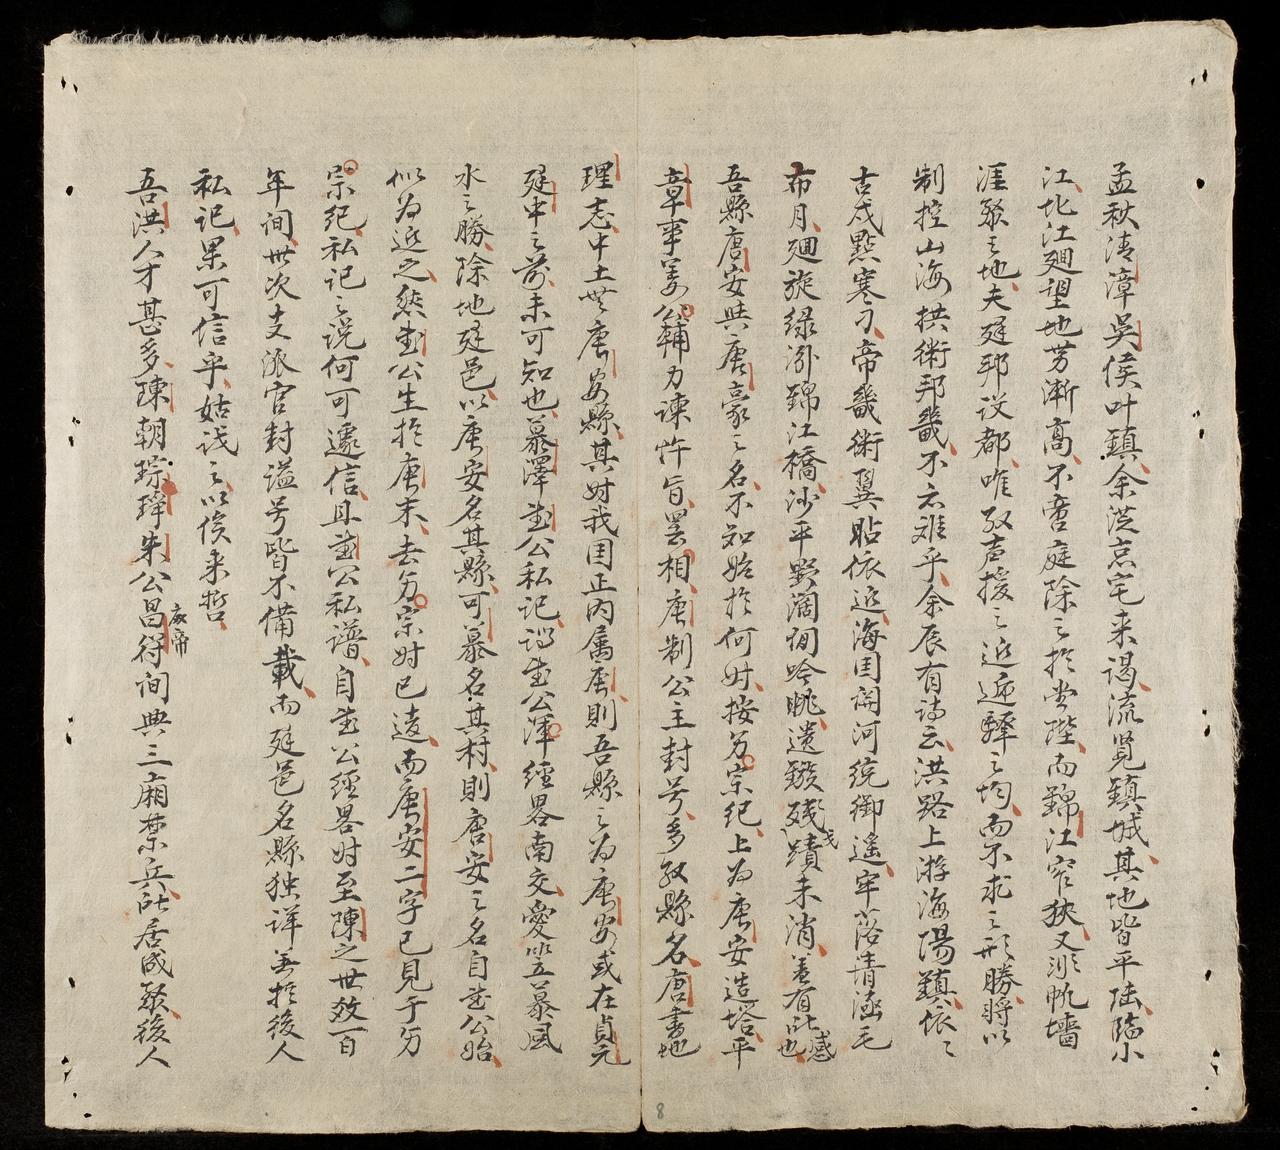 孟秋清漳吳侯叶鎮余從京宅来謁流覽鎮城其地皆平陆臨小
江北江迴望地势漸高不啻庭除之於堂陛而錦江窄狹又非帆墻
涯聚之地夫廷邦設都唯取声援之近遞驛之均而不求之形勝將以
制控山海拱衛邦畿不亦难乎余辰有詩云洪路上游海陽鎮依之
古戍點寒刁帝畿衛翼貼依近海国開河统御遥牢落清漚毛
布月廻旋绿泖錦江橋沙平野濶徊吟眺遺鏃残蹟未消盖有此感也
吾縣唐安與唐豪之名不知始於何时按另宗紀上为唐安造塔平
章事姜公輔力谏忤旨罢相唐制公主封号多取縣名唐書地
理志中土無唐安縣其时我国正内属唐則吾縣之为唐安或在貞元
廷中之前未可知也慕澤武公私记謂武公渾經畧南交愛竺暮風
水之勝除地廷邑以唐安名其縣可慕名其村則唐安之名自武公始
似为近之然武公生於唐末去另宗时已遠而唐安二字已見于另
宗紀私记之说何可遽信且武公私譜自武公經畧时至陳之世敉百
年间世次支派官封谥号皆不備載而廷邑名縣独详善於後人
私记果可信乎姑识之以俟来哲
吾洪人才甚多陳朝琮琾朱公昌得徊典三廂禁兵所居成聚後人
廢帝